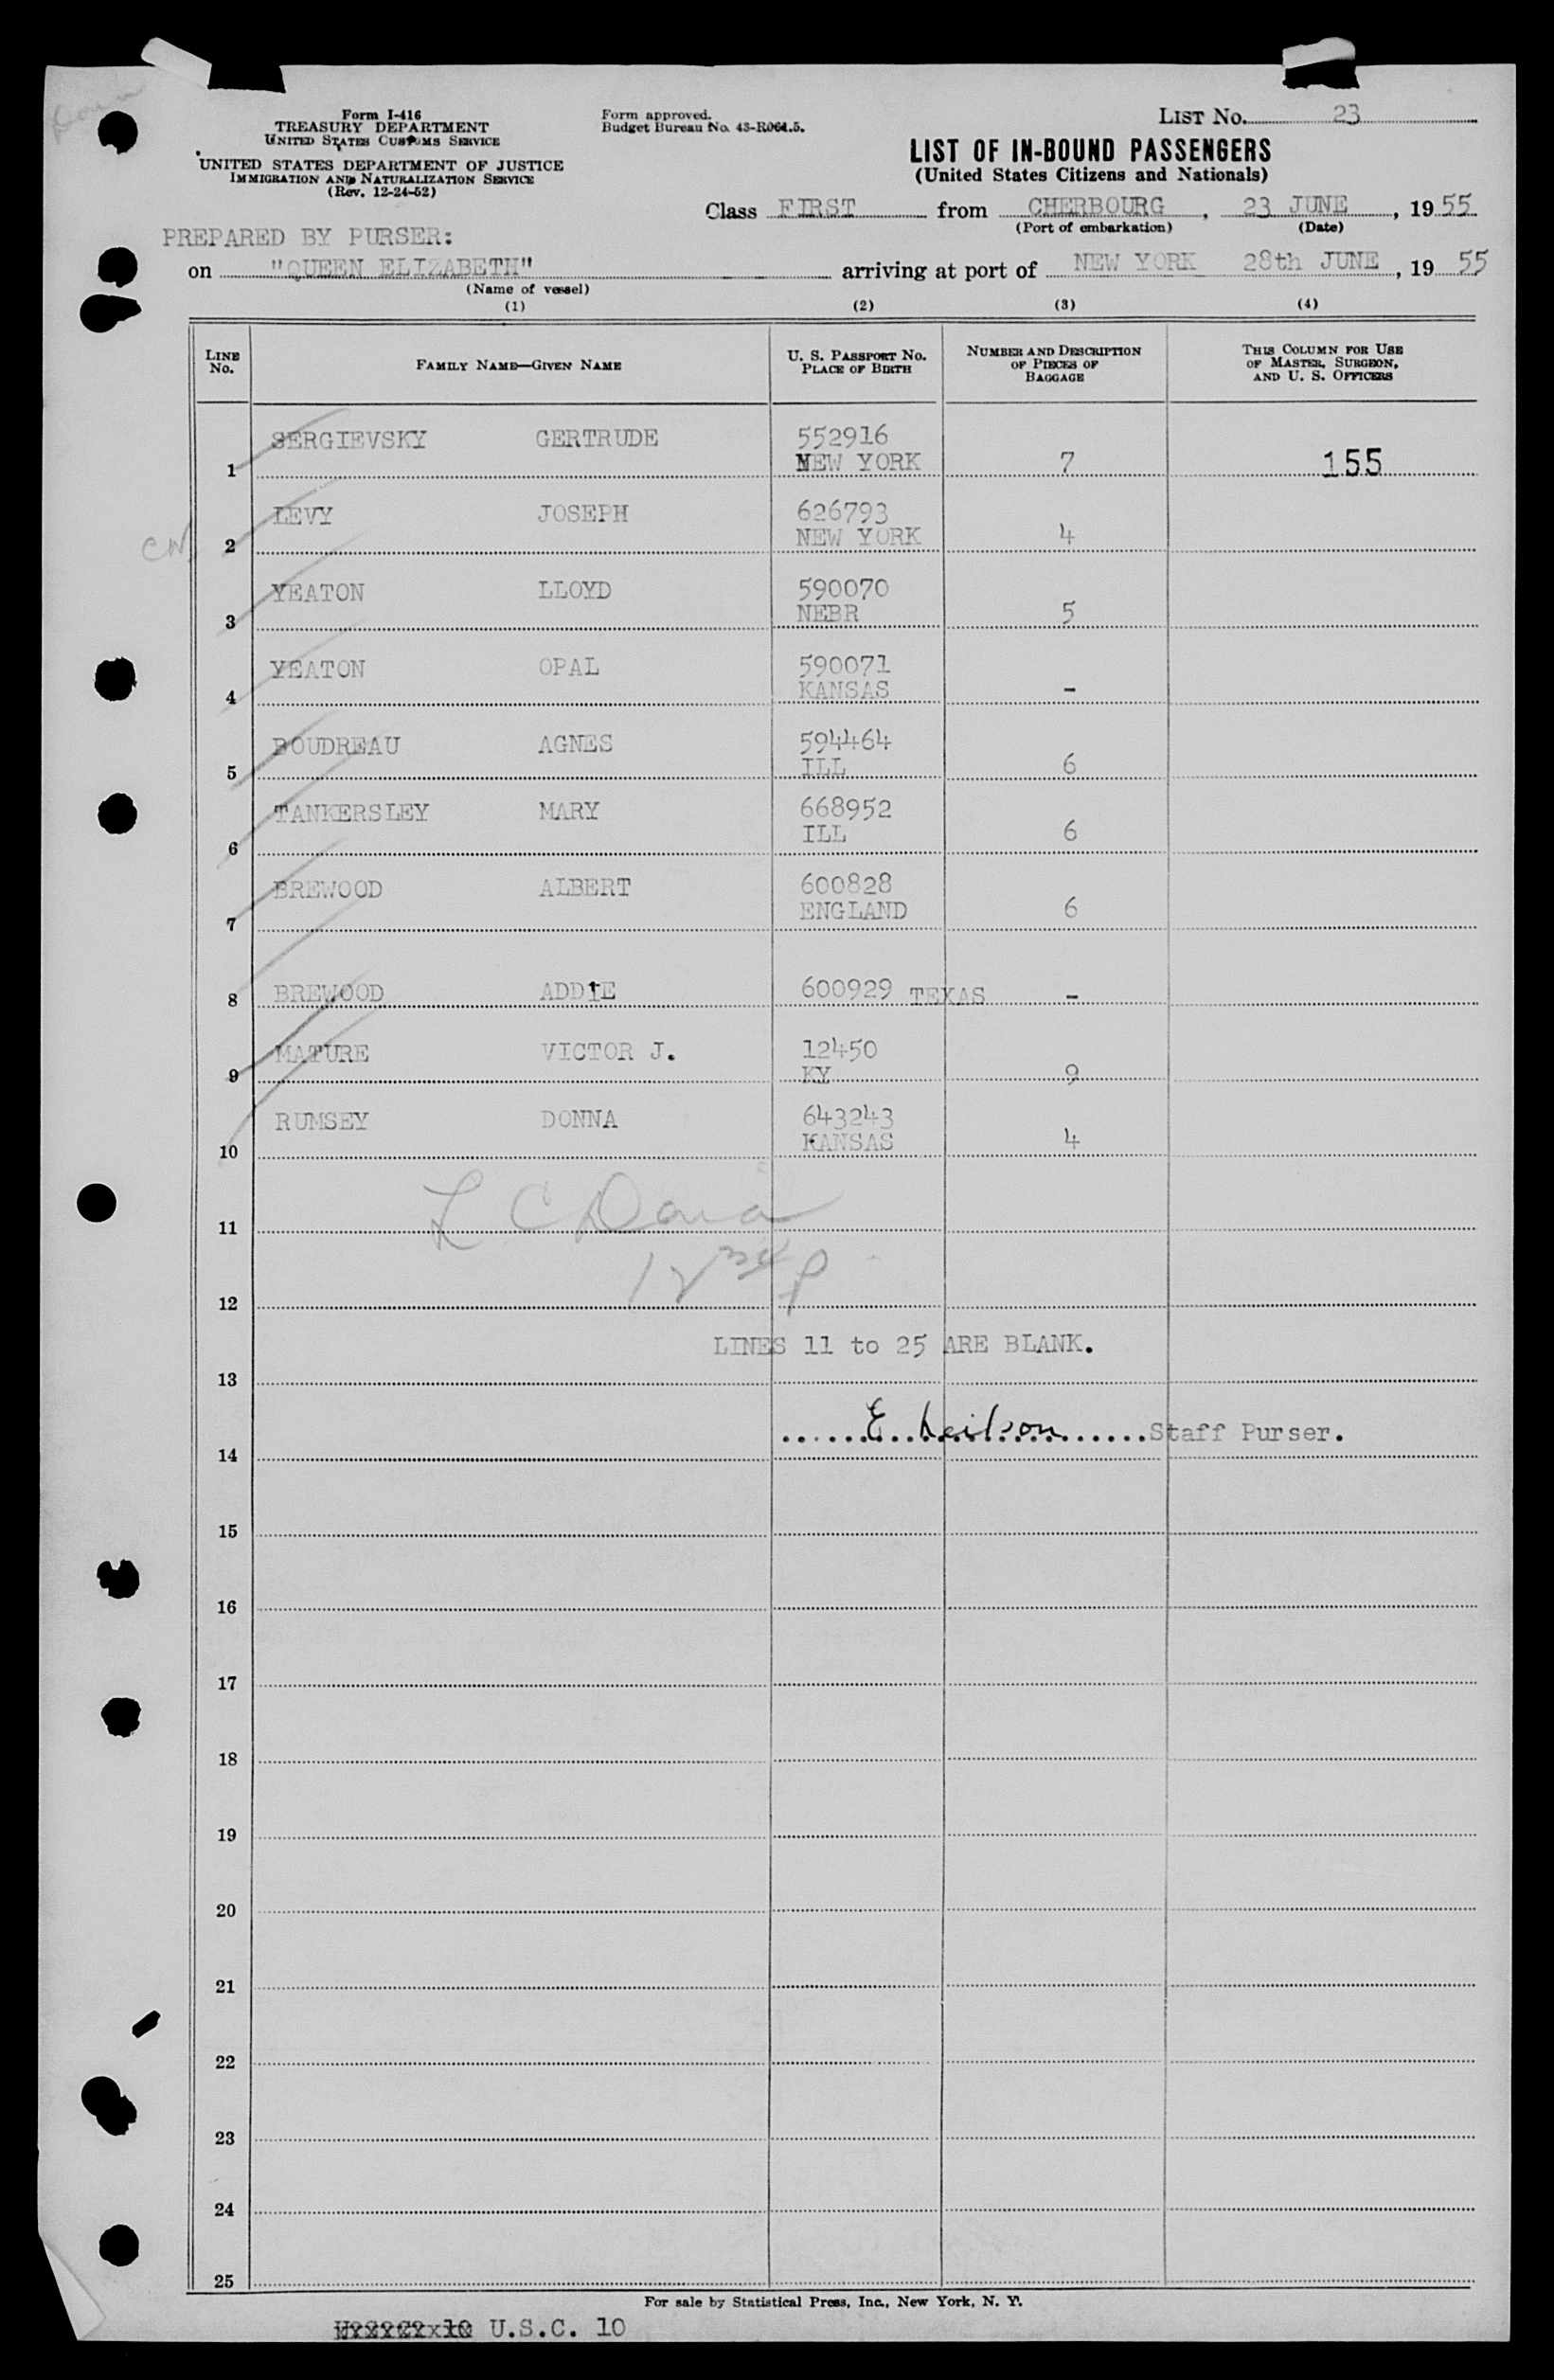 Form I-416
TREASURY DEPARTMENT
UNITED STATES CUSTOMS SERVICE
UNITED STATES DEPARTMENT OF JUSTICE
IMMIGRATION AND NATURALIZATION SERVICE
(Rev. 12-24-52)
Form approved.
Budget Bureau No. 43-R064.5.
LIST No. 23
LIST OF IN-BOUND PASSENGERS
(United States Citizens and Nationals)
Class FIRST from CHERBOURG, 23 JUNE, 1955
(Port of embarkation) (Date)
PREPARED BY PURSER:
on "QUEEN ELIZABETH" arriving at port of NEW YORK 28th JUNE, 1955
(Name of vessel)
(1) (2) (3) (4)
LINE No. FAMILY NAME—GIVEN NAME U. S. PASSPORT No. PLACE OF BIRTH NUMBER AND DESCRIPTION OF PIECES OF BAGGAGE THIS COLUMN FOR USE OF MASTER, SURGEON, AND U. S. OFFICERS
1 SERGIEVSKY GERTRUDE 552916 NEW YORK 7 155
CN 2 LEVY JOSEPH 626793 NEW YORK 4
3 YEATON LLOYD 590070 NEBR 5
4 YEATON OPAL 590071 KANSAS -
5 BOUDREAU AGNES 594464 ILL 6
6 TANKERSLEY MARY 668952 ILL 6
7 BREWOOD ALBERT 600828 ENGLAND 6
8 BREWOOD ADDIE 600929 TEXAS -
9 MATURE VICTOR J. 12450 KY 9
10 RUMSEY DONNA 643243 KANSAS 4
11
12
LINES 11 to 25 ARE BLANK.
13
E Neilson Staff Purser.
14
15
16
17
18
19
20
21
22
23
24
25
For sale by Statistical Press, Inc., New York, N. Y.
U.S.C. 10